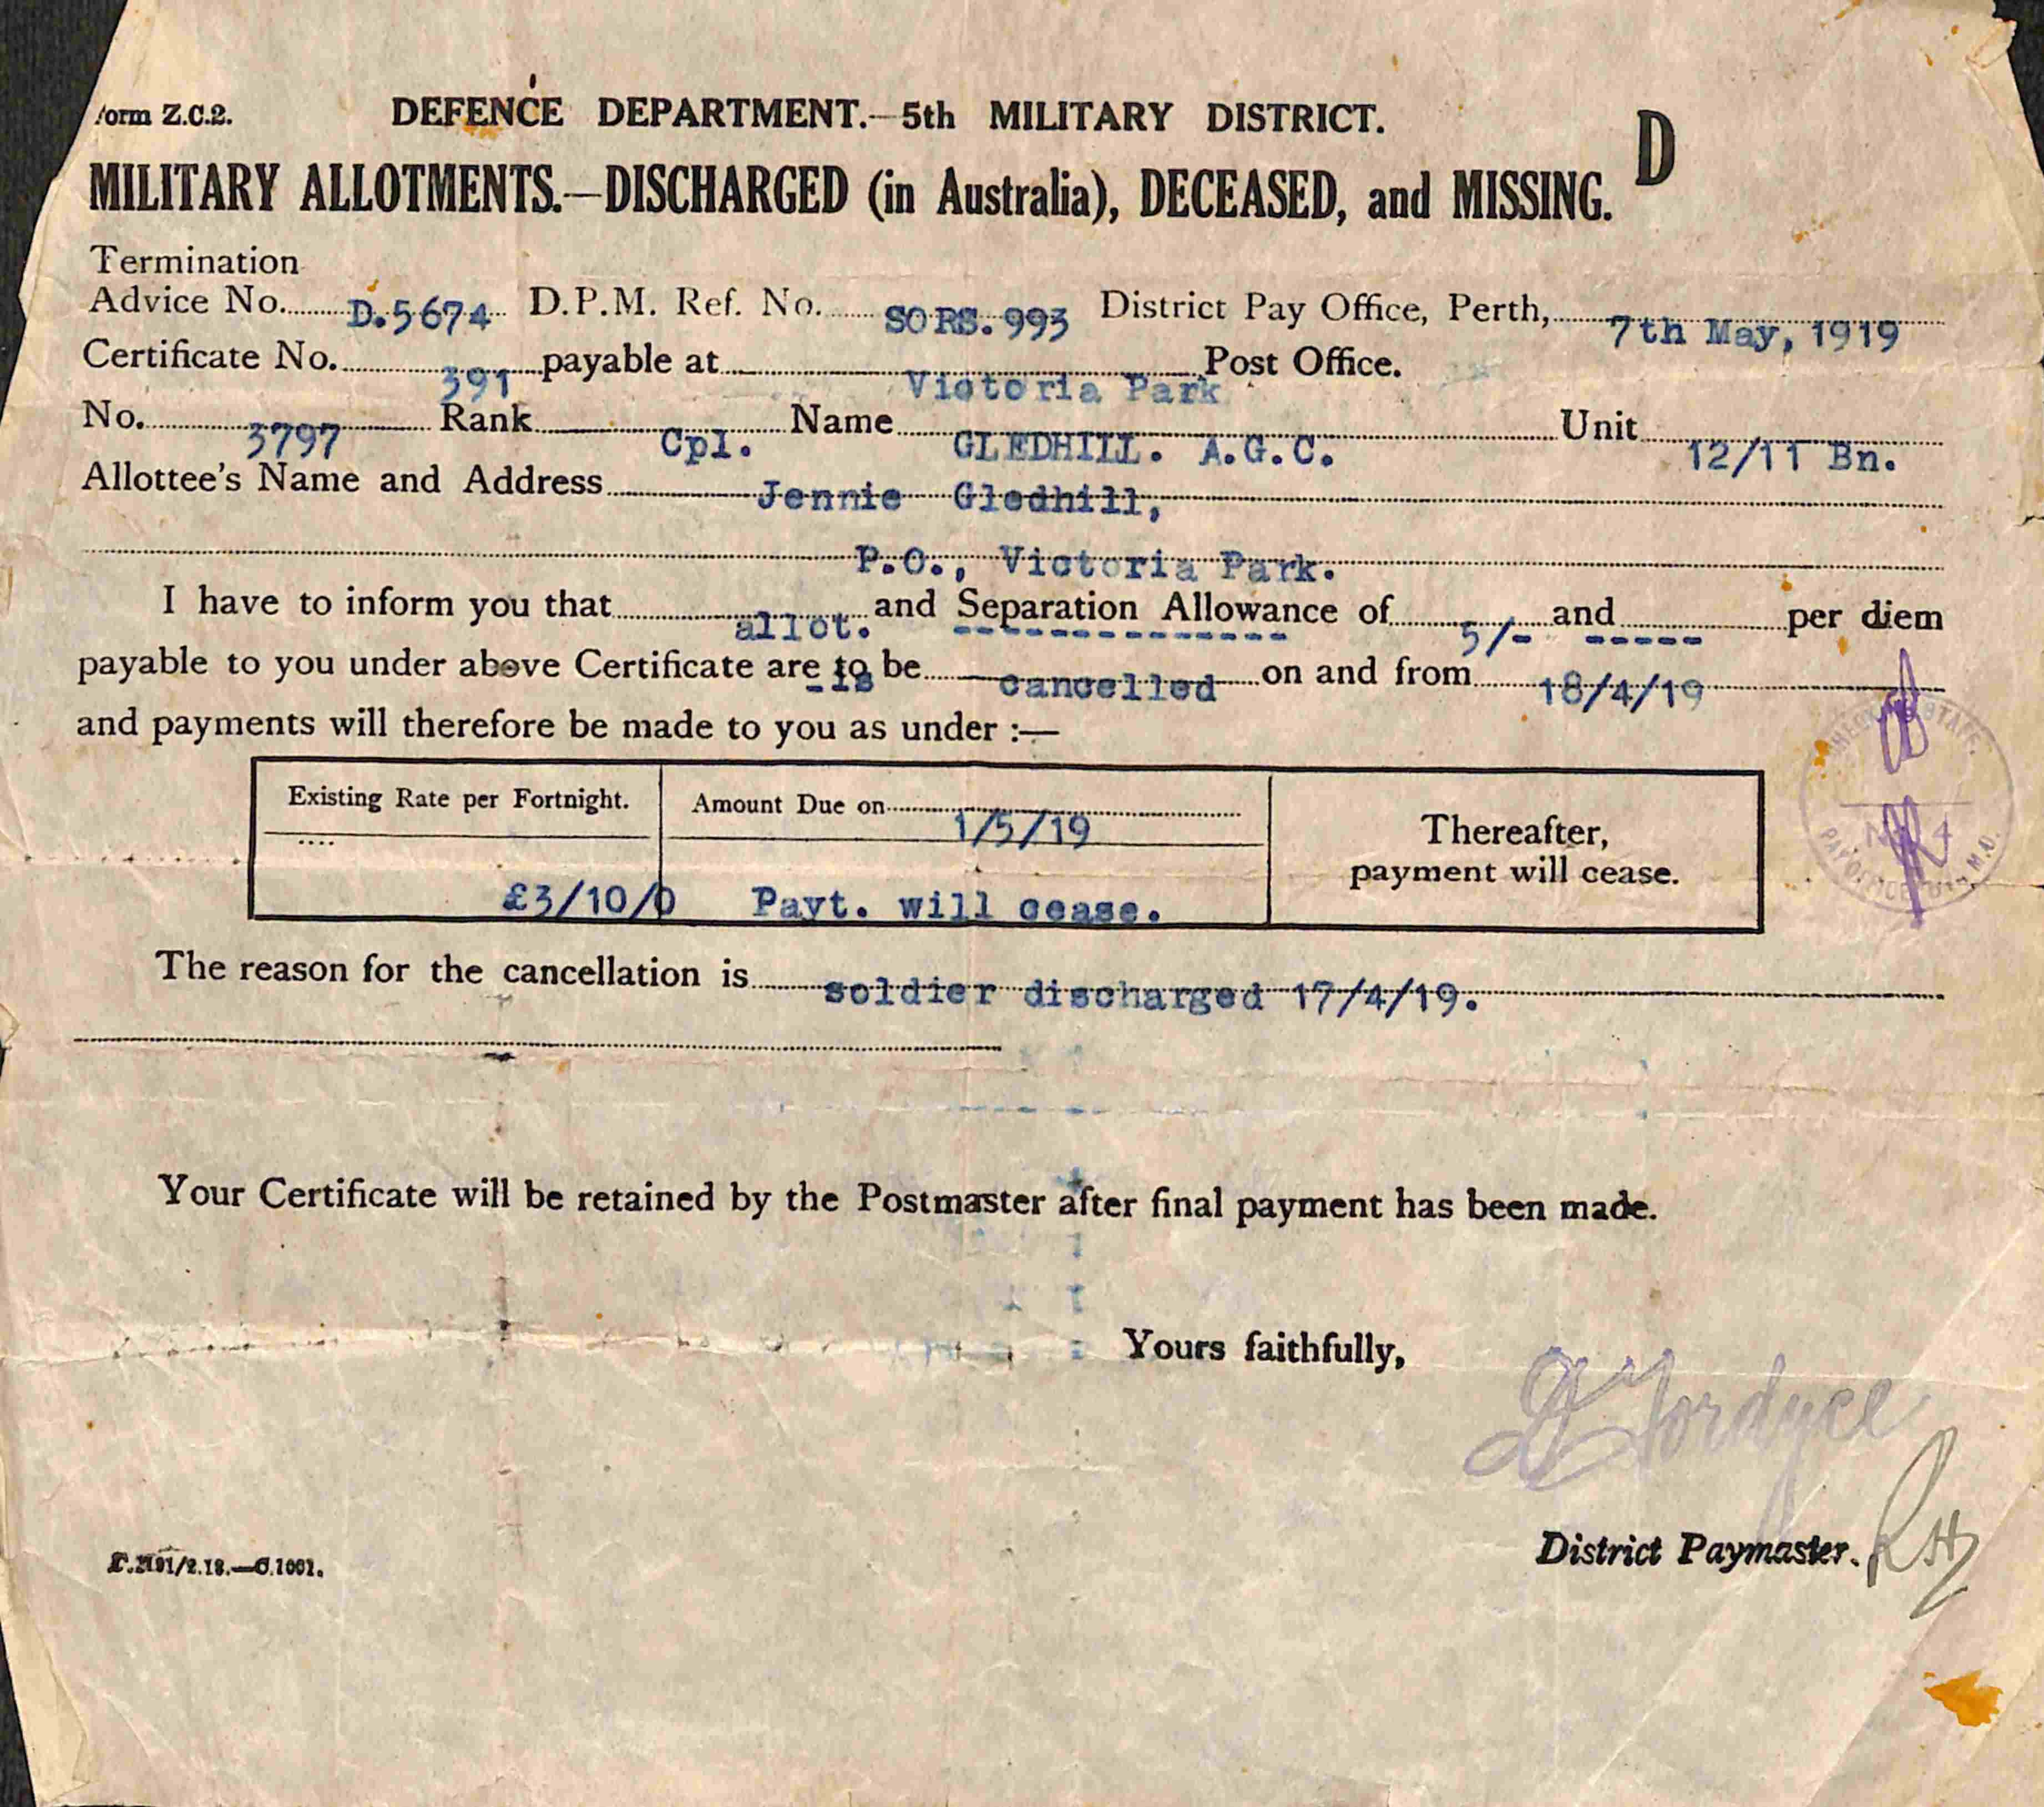 form Z.C.2. DEFENCE DEPARTMENT.—5th MILITARY DISTRICT. D
MILITARY ALLOTMENTS.—DISCHARGED (in Australia), DECEASED, and MISSING.
Termination
Advice No. D.5674 D.P.M. Ref. No. SORS.993 District Pay Office, Perth, 7th May, 1919
Certificate No. 391 payable at Victoria Park Post Office.
No. 3797 Rank Cpl. Name GLEDHILL. A.G.C. Unit 12/11 Bn.
Allottee's Name and Address Jennie Gledhill,
P.O., Victoria Park.
I have to inform you that allot. and Separation Allowance of 5/- and ----- per diem
payable to you under above Certificate are to be is cancelled on and from 18/4/19
and payments will therefore be made to you as under :—
Existing Rate per Fortnight. Amount Due on 1/5/19 Thereafter,
payment will cease.
£3/10/0 Payt. will cease.
The reason for the cancellation is soldier discharged 17/4/19.
Your Certificate will be retained by the Postmaster after final payment has been made.
Yours faithfully,
Fordyce
District Paymaster.